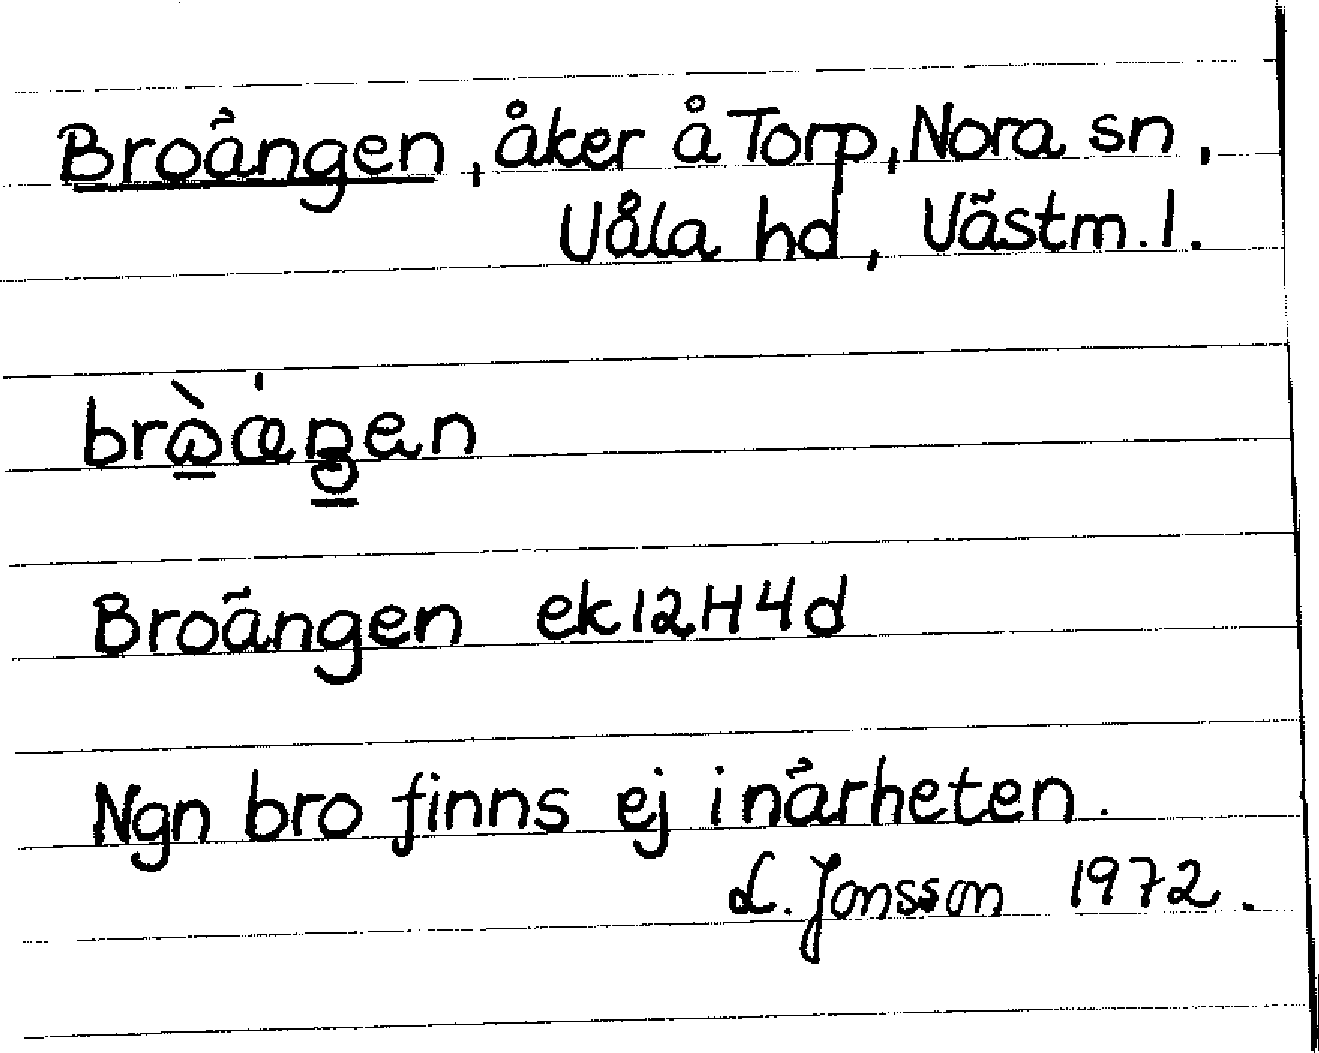 Broängen, åker å Torp, Nora sn,
Våla hd, Västm. l.
Broängen ek 12H4d
Ngn bro finns ej i närheten.
L. Jonsson 1972.